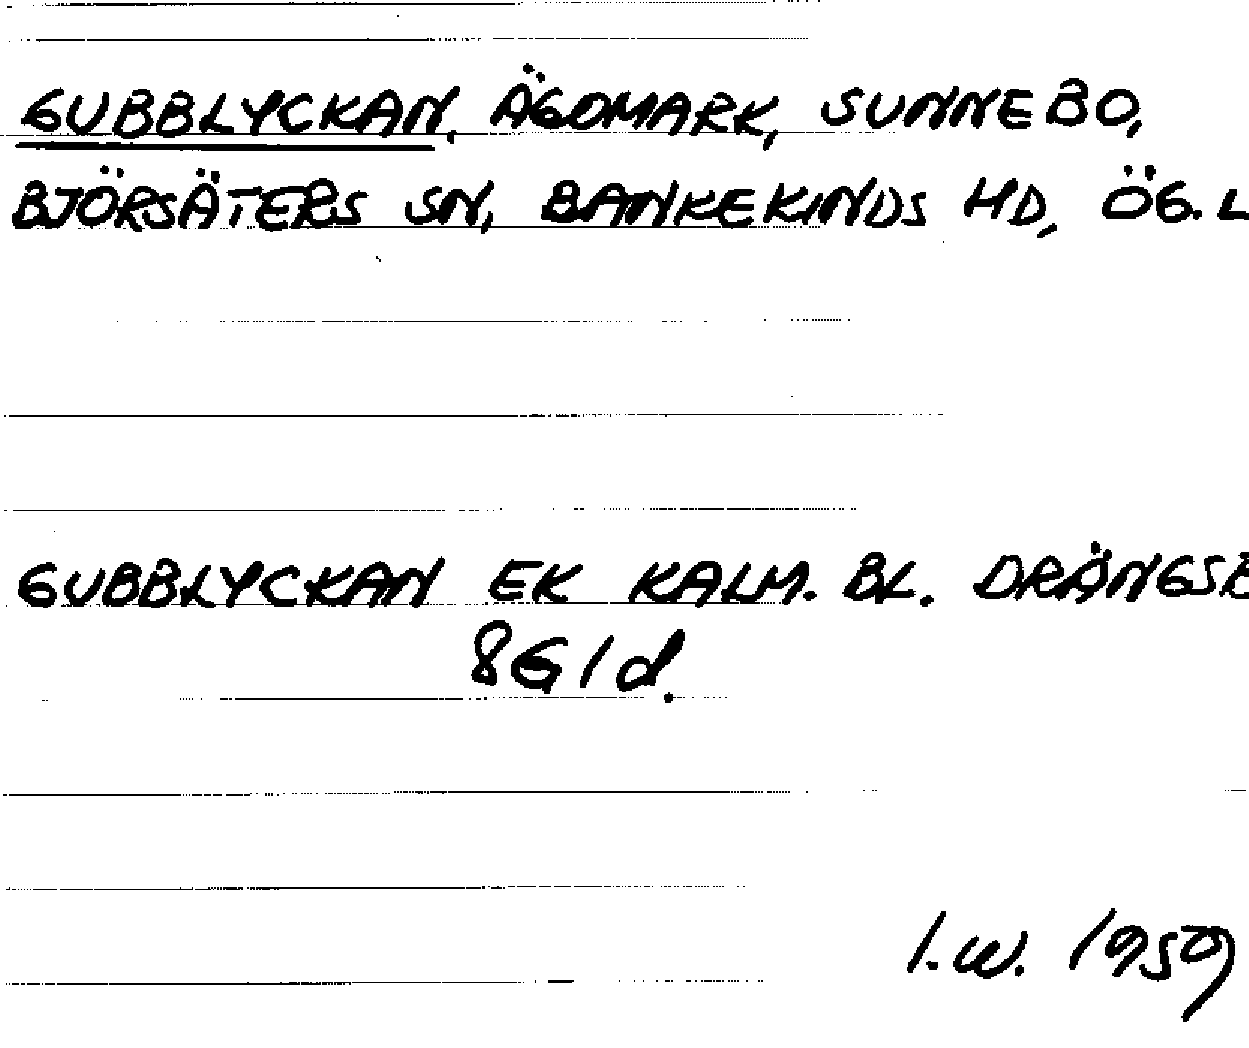 GUBBLYCKAN, ÄGOMARK, SUNNEBO,
BJÖRSÄTERS SN, BANKEKINDS HD, ÖG. L
GUBBLYCKAN EK KALM. BL. DRÄNGSB
8G1d.
I.W. 1959